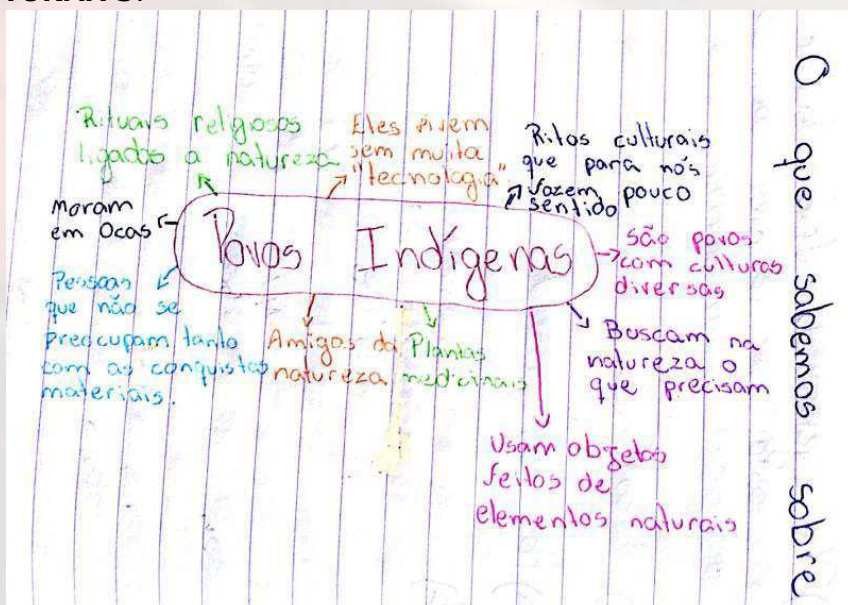 O que sabemos sobre
Rituais religiosos
ligados a natureza
Eles vivem
sem muita
"tecnologia"
Ritos culturais
que para nós
fazem pouco
sentido
Moram
em Ocas
Povos Indígenas
são povos
com culturas
diversas
Pessoas
que não se
preocupam tanto
com as conquistas
materiais.
Amigos da
natureza
Plantas
medicinais
Buscam na
natureza o
que precisam
Usam objetos
feitos de
elementos naturais